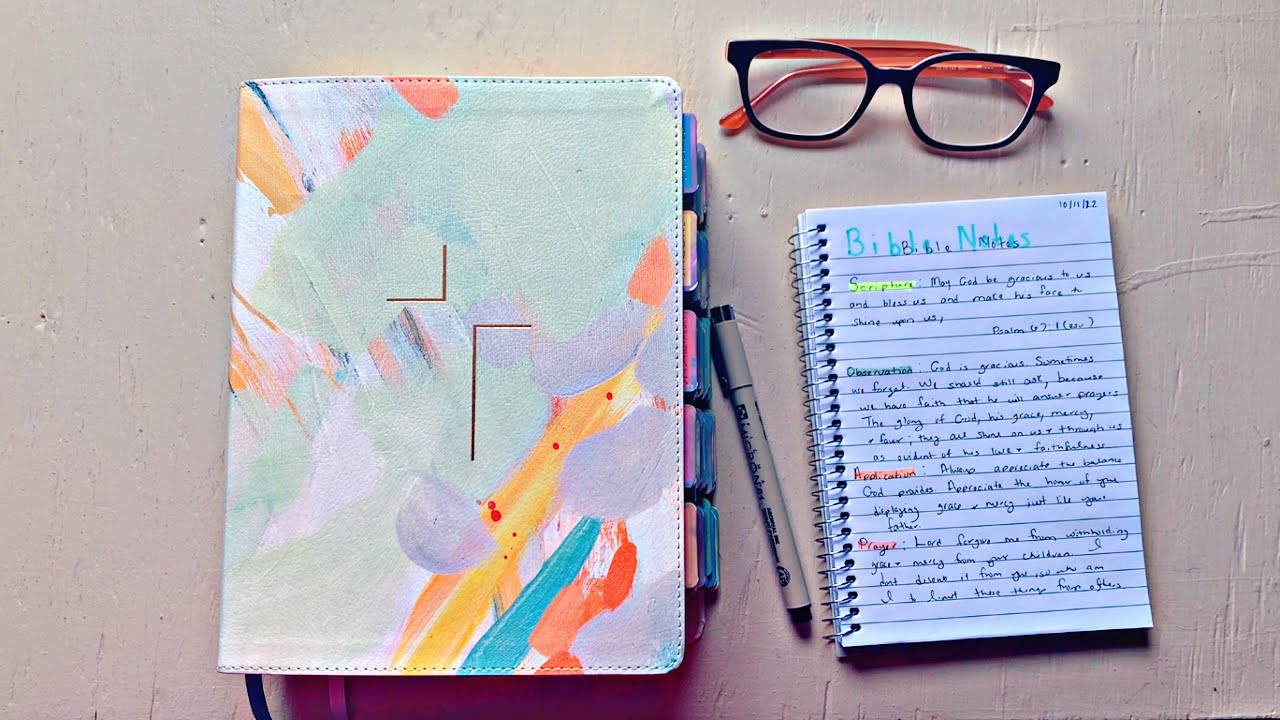 10/11/22
Bible Notes
Bible Notes
Scripture: May God be gracious to us
and bless us and make his face to
shine upon us,
Psalm 67:1 (esv)
Observation: God is gracious. Sometimes
we forget. We should still ask, because
we have faith that he will answer prayers
The glory of God, his grace, mercy,
+ favor; they all shine on us + through us
as evident of his love + faithfulness
Application: Always appreciate the balance
God provides. Appreciate the honor of your
displaying grace + mercy just like your
father.
Prayer: Lord forgive me from withholding
grace + mercy from your children. I
dont deserve it from you, so who am
I to limit these things from others.
MICRON